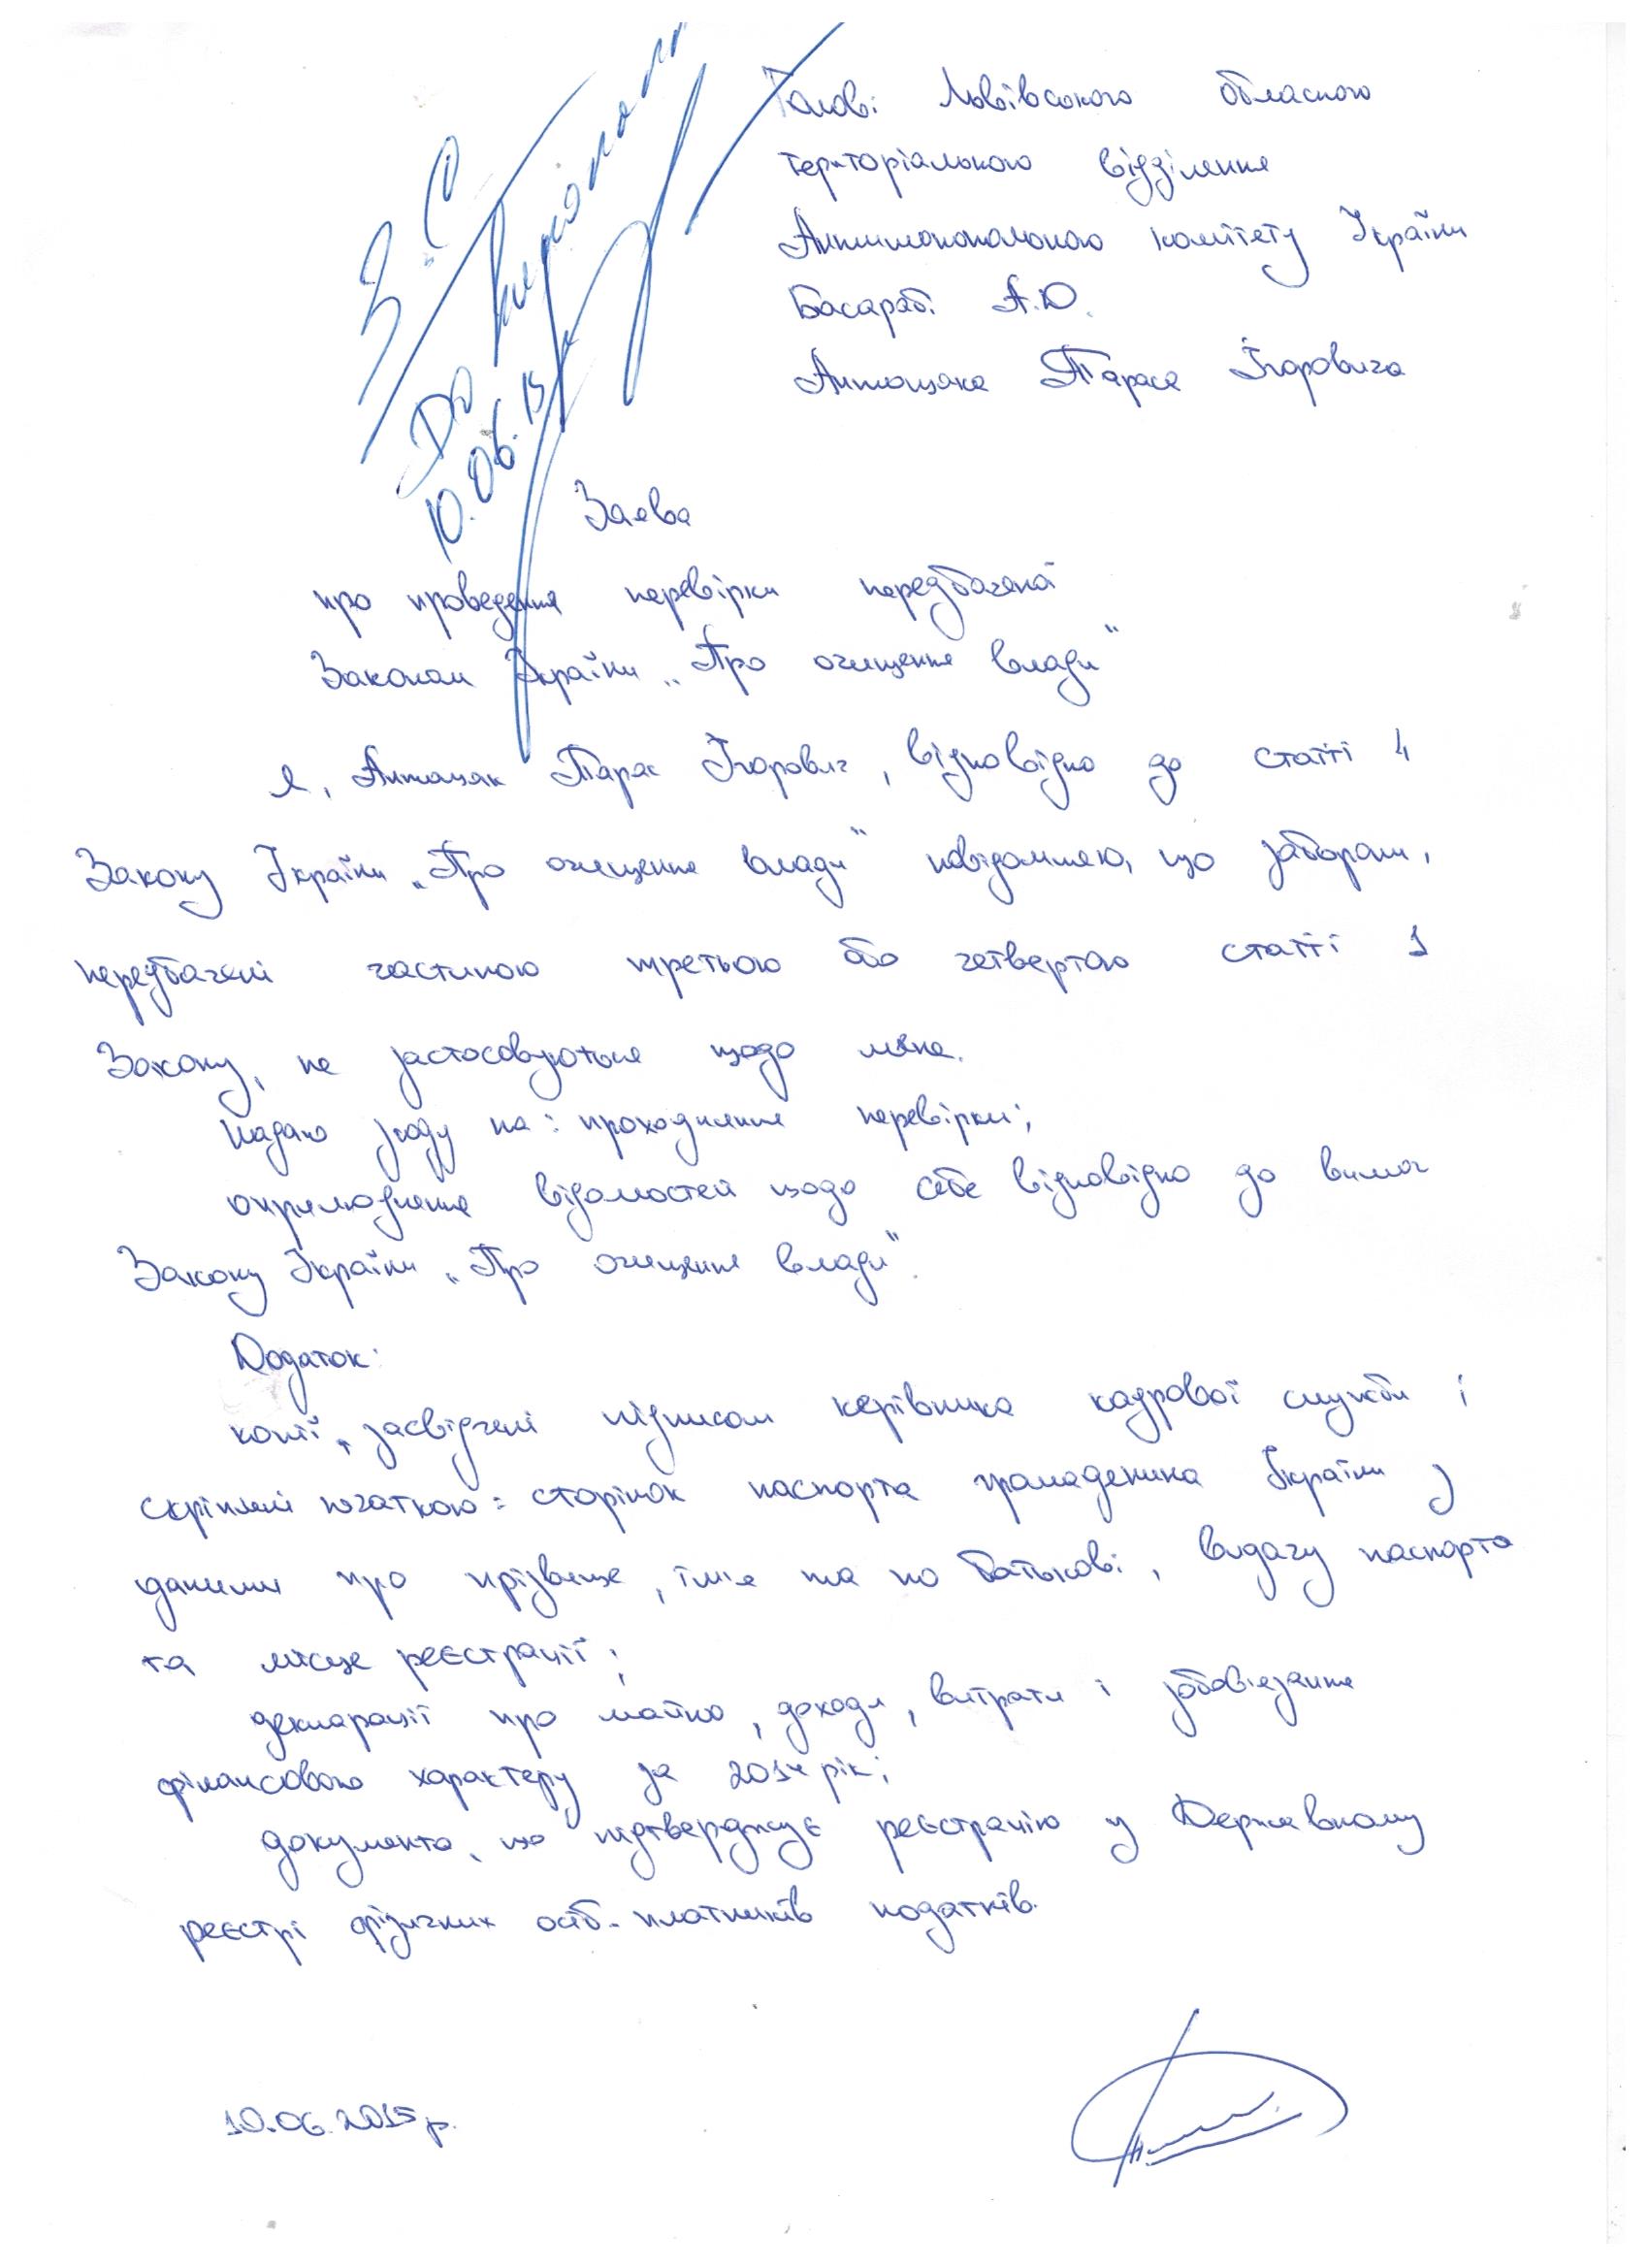 Голові Львівського обласного
територіального відділення
Антимонопольного комітету України
Басараб. А.Ю.
Антощака Тараса Ігоровича
До виконання
10.06.15
Заява
про проведення перевірки передбаченої
Законом України „Про очищення влади"
Я, Антощак Тарас Ігорович, відповідно до статті 4
Закону України „Про очищення влади" повідомляю, що заборони,
передбачені частиною третьою або четвертою статті 1
Закону, не застосовуються щодо мене.
Надаю згоду на: проходження перевірки;
оприлюднення відомостей щодо себе відповідно до вимог
Закону України „Про очищення влади".
Додаток:
копії, засвідчені підписом керівника кадрової служби і
скріплені печаткою: сторінок паспорта громадянина України з
даними про прізвище, ім'я та по батькові, видачу паспорта
та місце реєстрації;
декларації про майно, доходи, витрати і зобов'язання
фінансового характеру за 2014 рік;
документа, що підтверджує реєстрацію у Державному
реєстрі фізичних осіб-платників податків.
10.06.2015р.